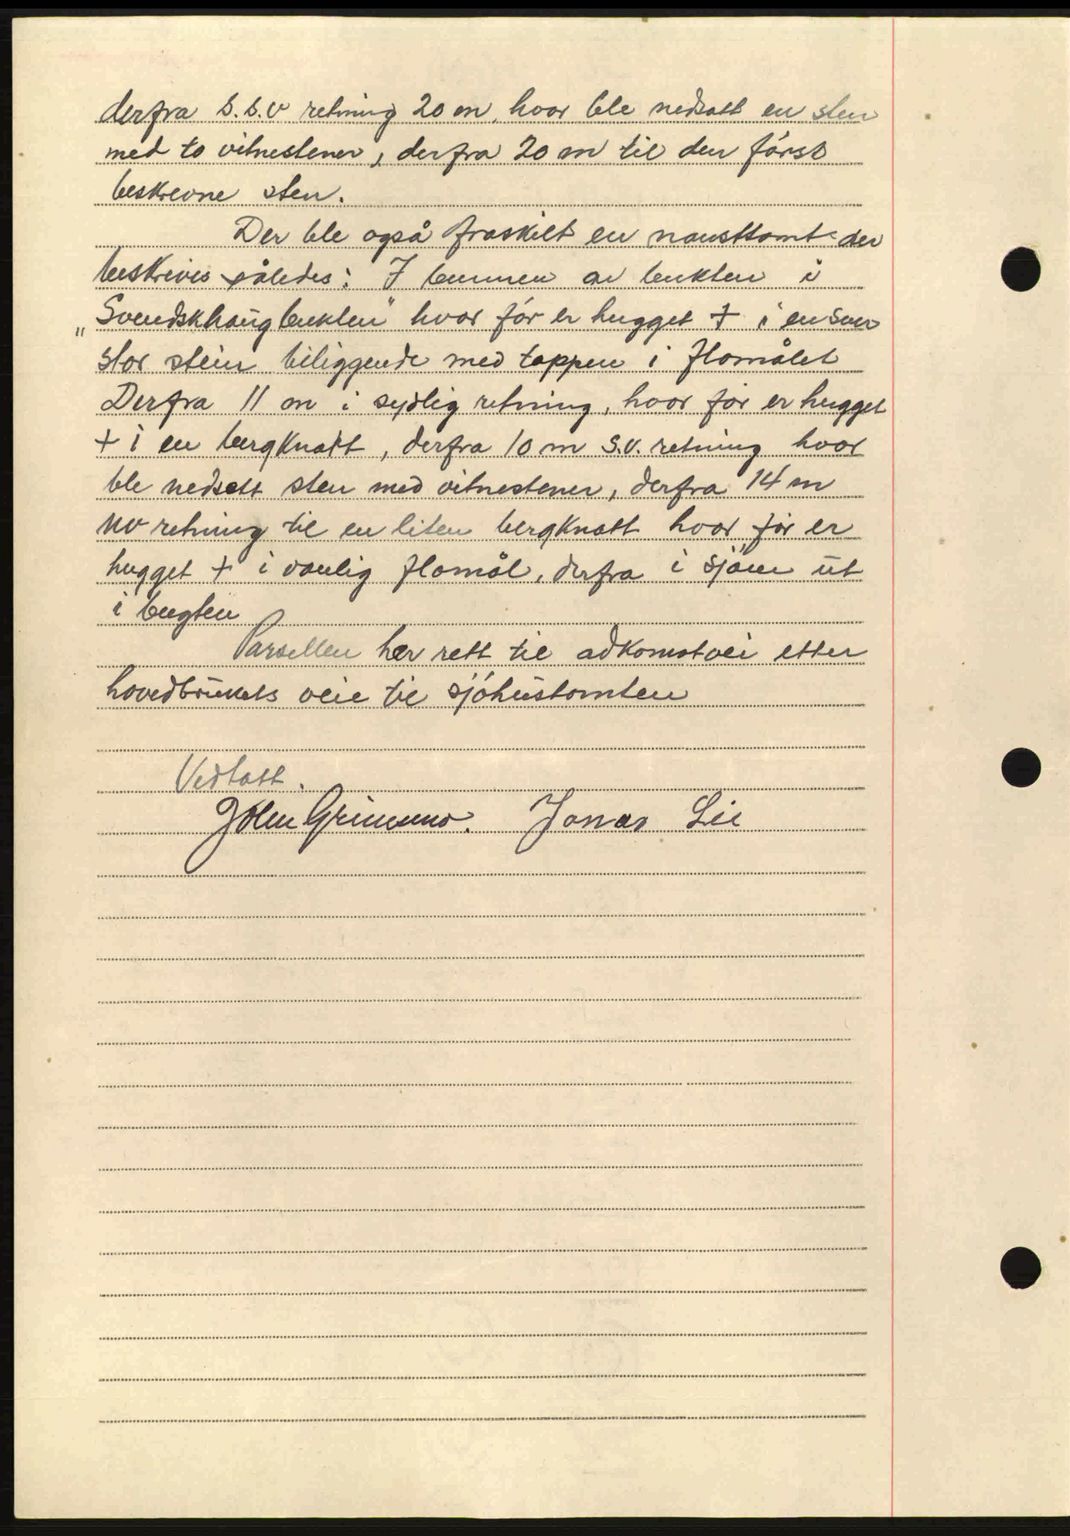 derfra S.S.V retning 20 m. hvor ble nedsatt en sten
med to vitnestener, derfra 20 m til den først
beskrevne sten.
Der ble også fraskilt en nausttomt der
beskrives således: I bunnen av bukten i
"Svendskhaugbukten" hvor før er hugget + i en svær
stor stein beliggende med toppen i flomålet
Derfra 11 m i sydlig retning, hvor før er hugget
+ i en bergknatt, derfra 10 m S.V. retning hvor
ble nedsett sten med vitnestener, derfra 14 m
NV retning til en liten bergknatt hvor før er
hugget + i vanlig flomål, derfra i sjøen ut
i bugten
Parsellen her rett til adkomstvei etter
hovedbrukets veie til sjøhustomten
Vedtatt.
John Grimsmo. Jonas Lie